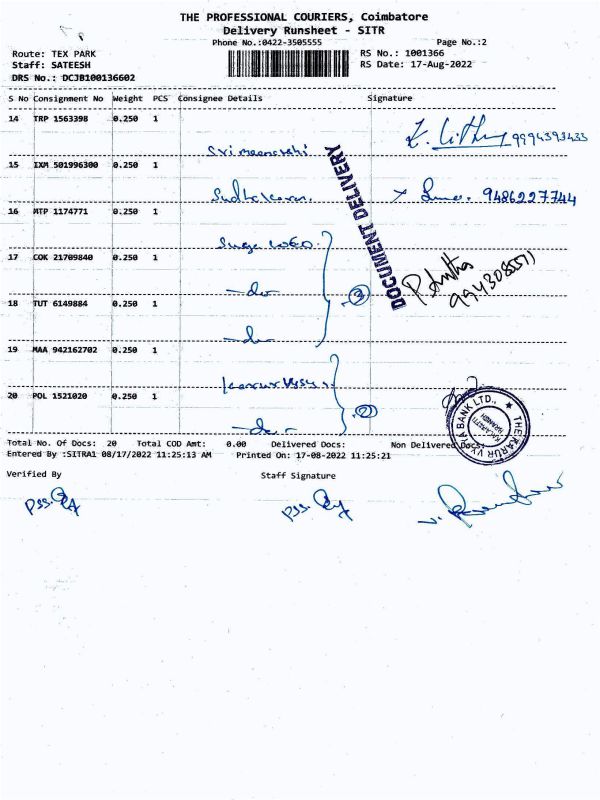 THE PROFESSIONAL COURIERS, Coimbatore
Delivery Runsheet - SITR
Phone No.:0422-3505555
Page No.:2
Route: TEX PARK
RS No.: 1001366
Staff: SATEESH
RS Date: 17-Aug-2022
DRS No.: DCJB100136602
S No Consignment No Weight PCS Consignee Details Signature
14 TRP 1563398 0.250 1
9994393433
15 IXM 501996300 0.250 1
Sudhakaran. 9486227744
16 MTP 1174771 0.250 1
DOCUMENT DELIVERY
17 COK 21709840 0.250 1
-do-
3
18 TUT 6149884 0.250 1
19 MAA 942162702 0.250 1
Karur Vysya
20 POL 1521020 0.250 1
2
THE KARUR VYSYA BANK LTD.,
Total No. Of Docs: 20 Total COD Amt: 0.00 Delivered Docs: Non Delivered Docs:
Entered By :SITRA1 08/17/2022 11:25:13 AM Printed On: 17-08-2022 11:25:21
Verified By
Staff Signature